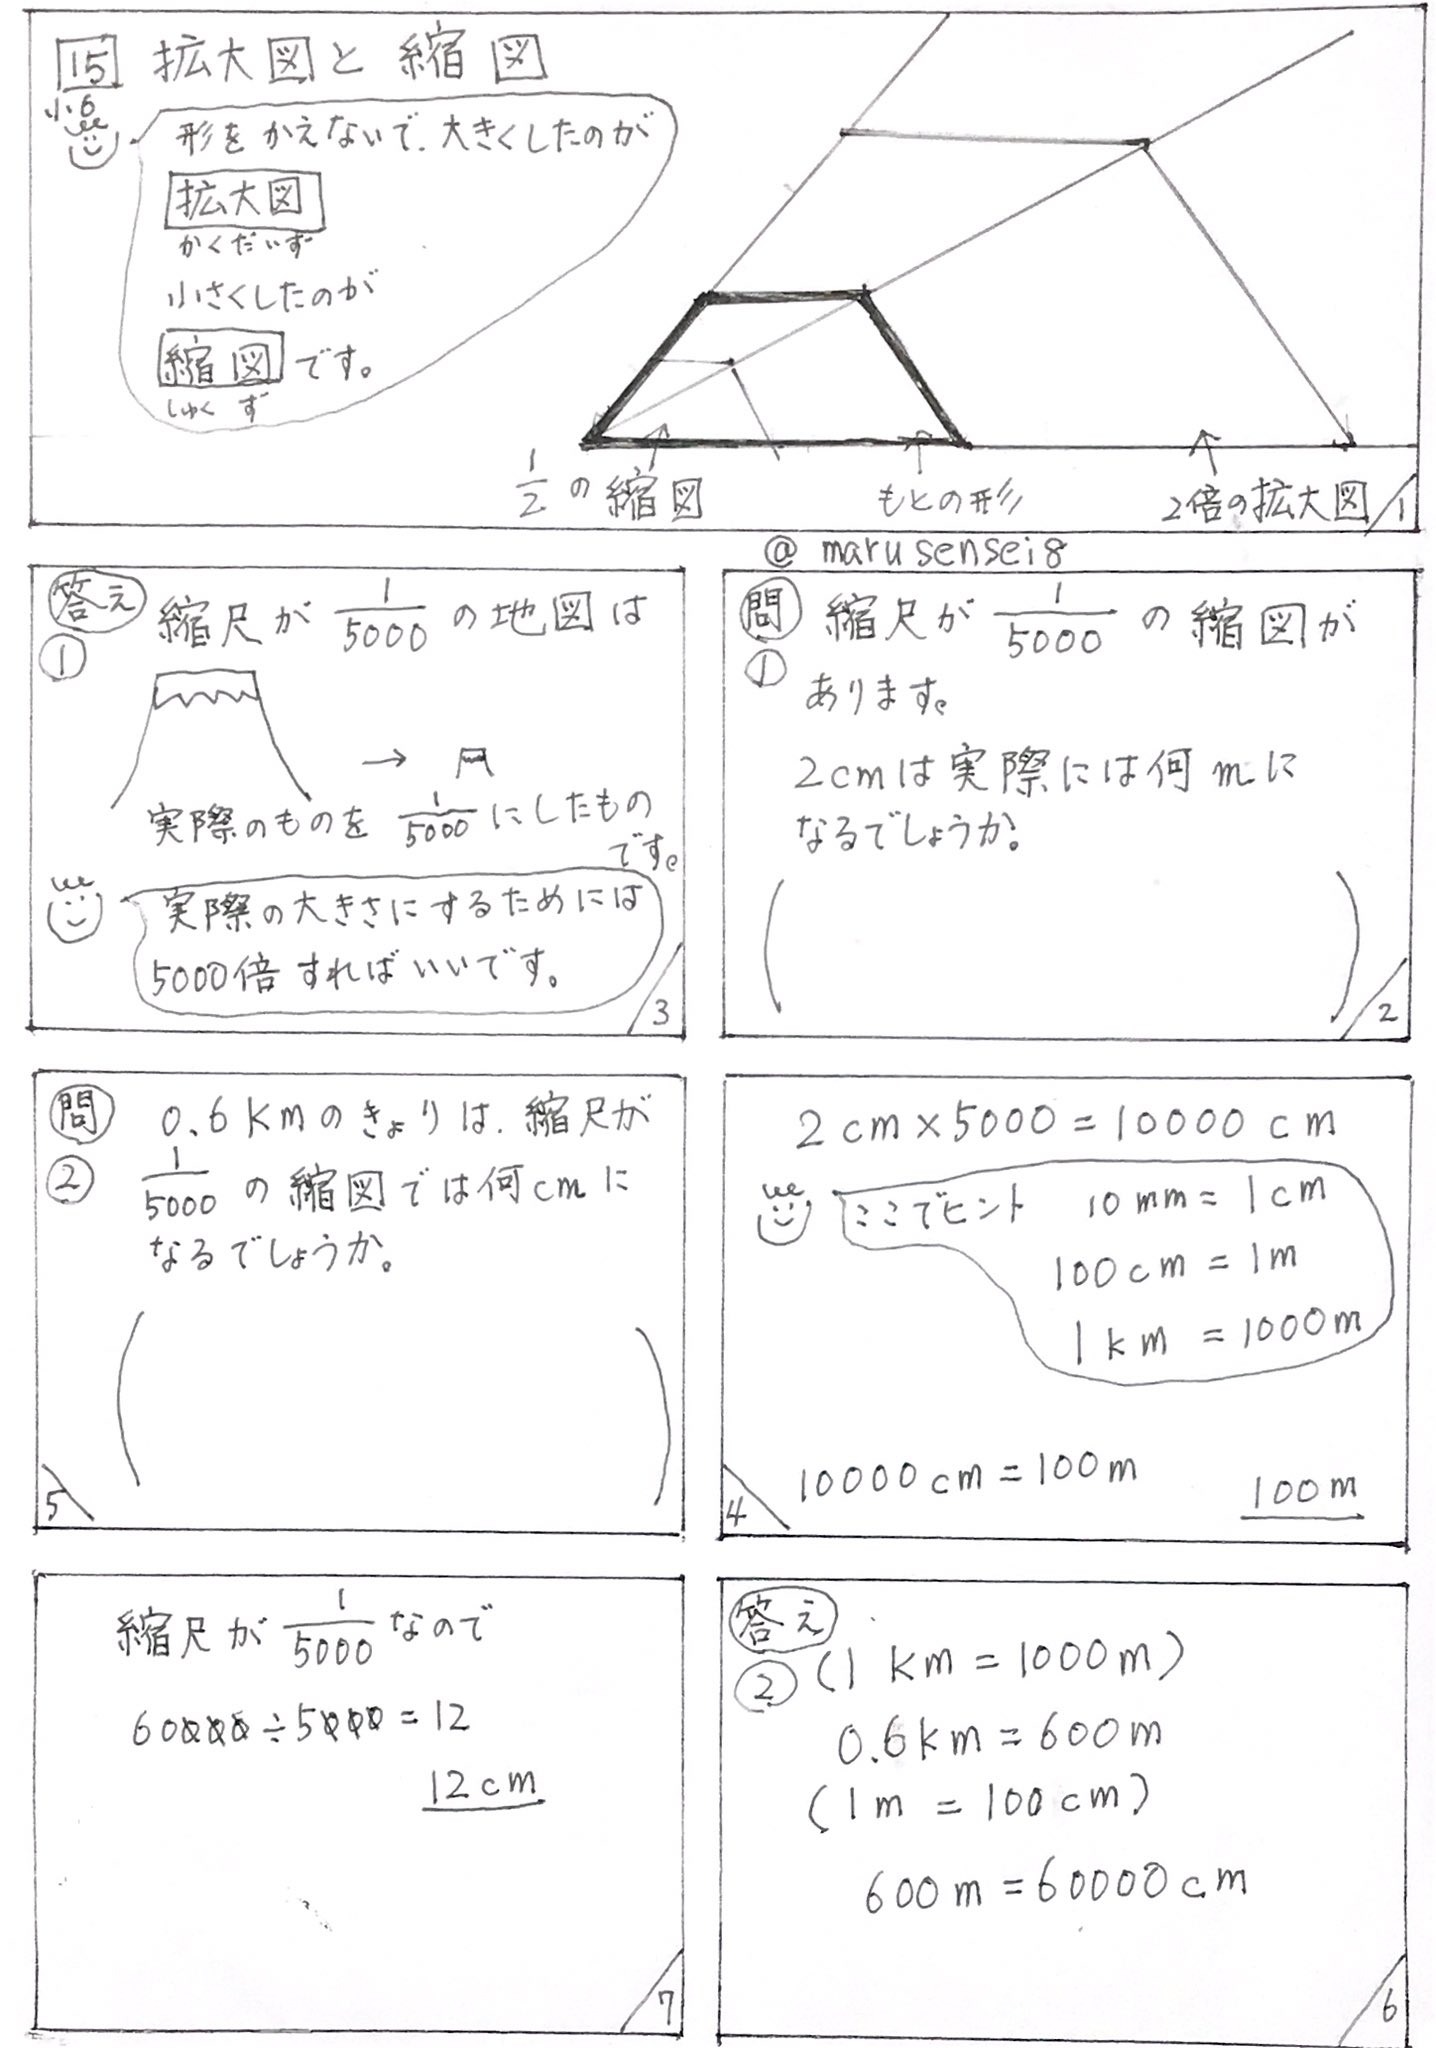 15 拡大図と縮図
小6
形をかえないで.大きくしたのが
拡大図
かくだいず
小さくしたのが
縮図です。
しゅくず
1/2の縮図
もとの形
2倍の拡大図
1
@marusensei8
問 縮尺が 1/5000 の縮図が
① あります。
2cmは実際には何mに
なるでしょうか。
( )
2
答え 縮尺が 1/5000 の地図は
①
→
実際のものを 1/5000 にしたもの
です。
実際の大きさにするためには
5000倍すればいいです。
3
2cm×5000=10000cm
ここでヒント 10mm=1cm
100cm=1m
1km=1000m
10000cm=100m
100m
4
問 0.6Kmのきょりは.縮尺が
② 1/5000 の縮図では何cmに
なるでしょうか。
( )
5
答え
② (1km=1000m)
0.6km=600m
(1m=100cm)
600m=60000cm
6
縮尺が 1/5000 なので
60000÷5000=12
12cm
7